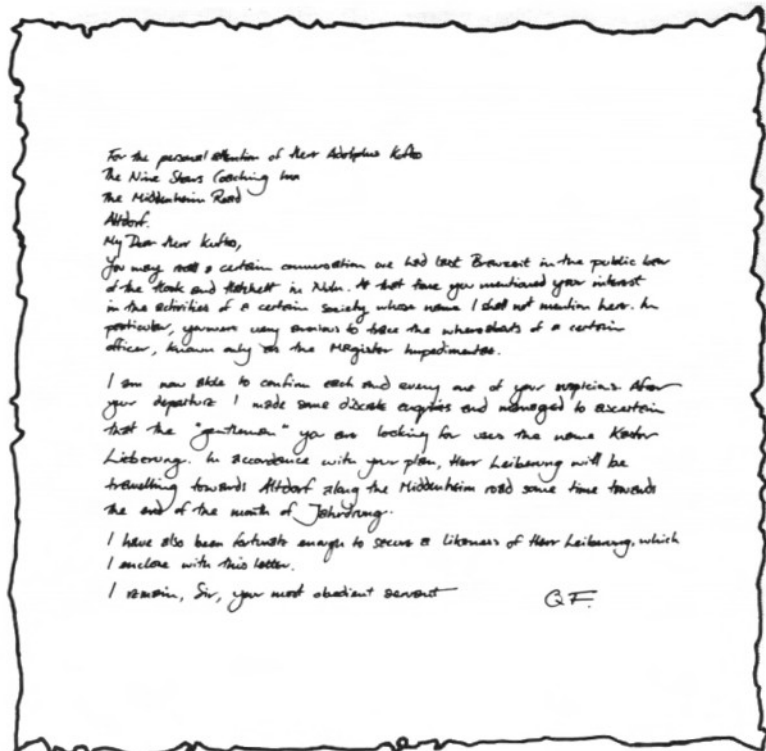 For the personal attention of Herr Adolphus Kuftso
The Nine Stars Coaching Inn
The Middenheim Road
Altdorf.
My Dear Herr Kuftso,
You may recall a certain conversation we had last Brauzeit in the public bar
of the Hook and Hatchett in Nuln. At that time you mentioned your interest
in the activities of a certain society whose name I shall not mention here. In
particular, you were very anxious to trace the whereabouts of a certain
officer, known only as the Magister Impedimentae.
I am now able to confirm each and every one of your suspicions. After
your departure I made some discrete enquiries and managed to ascertain
that the "gentleman" you are looking for uses the name Kastor
Lieberung. In accordance with your plan, Herr Leiberung will be
travelling towards Altdorf along the Middenheim road some time towards
the end of the month of Jahrdrung.
I have also been fortunate enough to secure a likeness of Herr Leiberung, which
I enclose with this letter.
I remain, Sir, your most obedient servant Q F.